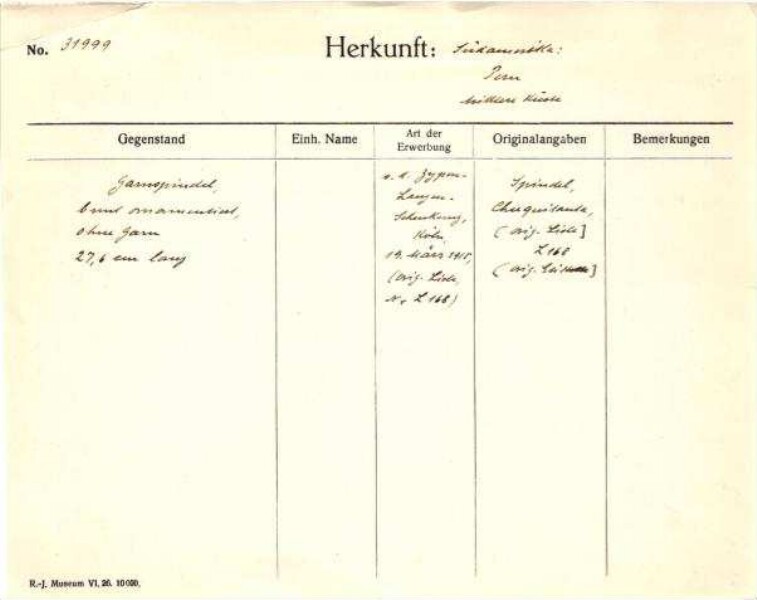 No. 31999
Herkunft: Südamerika:
Peru
Mittlere Küste
Gegenstand
Einh. Name
Art der
Erwerbung
Originalangaben
Bemerkungen
Garnspindel,
bunt ornamentiert,
ohne Garn
27,6 cm lang
v. d. Zypen-
Langen-
Schenkung,
Köln,
19. März 1915,
(orig. Liste,
Nr. Z 168)
Spindel,
Chuquitanta,
(orig. Liste]
Z 168
(orig.
R.-J. Museum VI. 26. 10000.